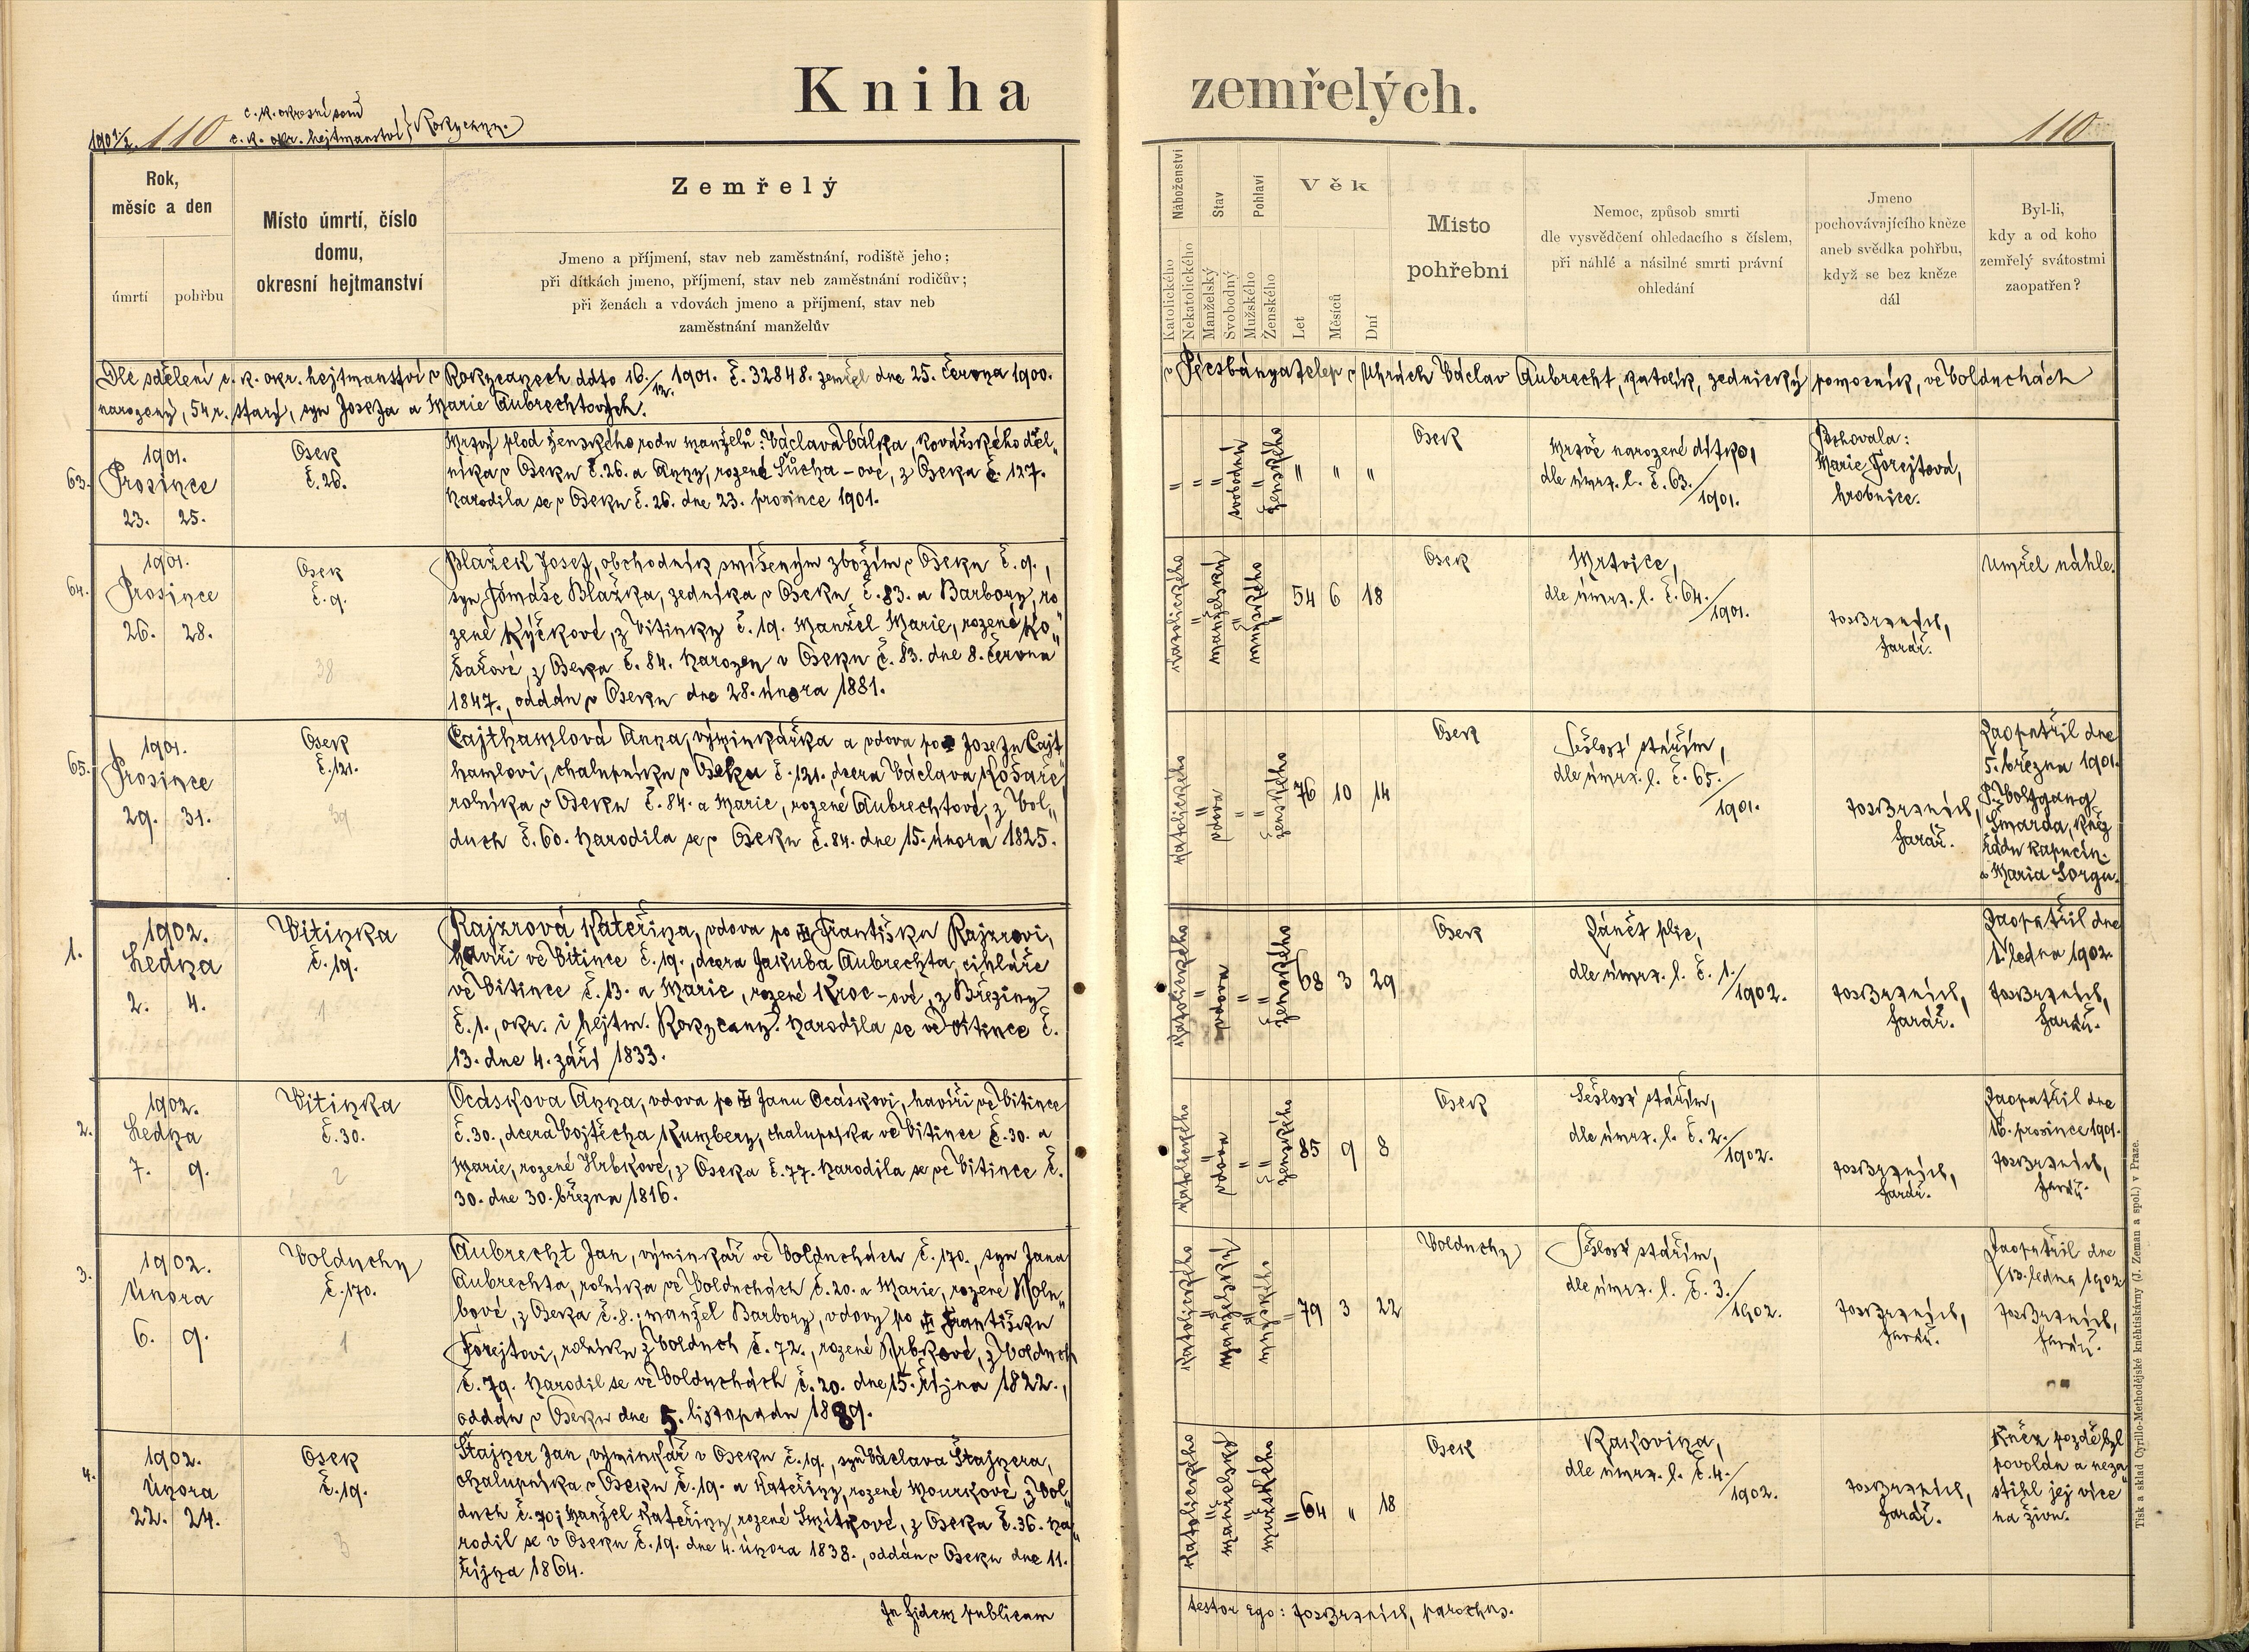 Kniha zemřelých.
1901/2. 110
c. k. okresní soud
c. k. okr. hejtmanství } Rokycany.
110
Rok, měsíc a den
úmrtí
pohřbu
Místo úmrtí, číslo
domu,
okresní hejtmanství
Zemřelý
Jmeno a příjmení, stav neb zaměstnání, rodiště jeho;
při dítkách jmeno, příjmení, stav neb zaměstnání rodičův;
při ženách a vdovách jmeno a příjmení, stav neb
zaměstnání manželův
Náboženství
Katolického
Nekatolického
Stav
Manželský
Svobodný
Pohlaví
Mužského
Ženského
Věk
Let
Měsíců
Dní
Místo
pohřební
Nemoc, způsob smrti
dle vysvědčení ohledacího s číslem,
při náhlé a násilné smrti právní
ohledání
Jmeno
pochovávajícího kněze
aneb svědka pohřbu,
když se bez kněze
dál
Byl-li,
kdy a od koho
zemřelý svátostmi
zaopatřen?
Dle sdělení c. k. okr. hejtmanství v Rokycanech ddto 16./12. 1901. č. 32848. zemřel dne 25. června 1900. v Pécsbányatelep v Uhrách Václav Aubrecht, katolík, zednický pomocník, ve Volduchách
narozený, 54 r. starý, syn Josefa a Marie Aubrechtových.
63.
1901.
Prosince
23. 25.
Osek
č. 26.
Mrtvý plod ženského rodu manželů: Václava Válka, kovářského děl„
níka v Oseku č. 26. a Anny, rozené Sůcha-ové, z Oseka č. 127.
Narodila se v Oseku č. 26. dne 23. prosince 1901.
" " " svobodný " ženského " " "
Osek
Mrtvě narozené dítko,
dle úmrt. l. č. 63./1901.
Pochovala:
Marie Forejtová,
hrobnice.
64.
1901.
Prosince
26. 28.
Osek
č. 9.
38
Blažek Josef, obchodník smíšeným zbožím v Oseku č. 9.,
syn Tomáše Blažka, zedníka v Oseku č. 83. a Barbory, ro
zené Kýčkové, z Vitinky č. 19. Manžel Marie, rozené Ko„
šařové, z Oseka č. 84. Narozen v Oseku č. 83. dne 8. června
1847., oddán v Oseku dne 28. února 1881.
Katolického " manželský " mužského " 54 6 18
Osek
Mrtvice,
dle úmrt. l. č. 64./1901.
farář.
Umřel náhle.
65.
1901.
Prosince
29. 31.
Osek
č. 121.
39
Cajthamlová Anna, výminkářka a vdova po Josefu Cajt
hamlovi, chalupníku v Oseku č. 121., dcera Václava Košaře
rolníka v Oseku č. 84. a Marie, rozené Aubrechtové, z Vol„
duch č. 60. Narodila se v Oseku č. 84. dne 15. února 1825.
Katolického " vdova " " ženského 76 10 14
Osek
Sešlost stářím,
dle úmrt. l. č. 65./1901.
farář.
Zaopatřil dne
5. března 1901.
P. Wolfgang
Šmarda, kněz
řádu kapucín.
v Maria Sorgu.
1.
1902.
Ledna
2. 4.
Vitinka
č. 19.
1
Rajzrová Kateřina, vdova po Františku Rajzrovi,
havíři ve Vitince č. 19., dcera Jakuba Aubrechta, cihláře
ve Vitince č. 13. a Marie, rozené Kroc-ové, z Březiny
č. 1., okr. i hejtm. Rokycany. Narodila se ve Vitince č.
13. dne 4. září 1833.
Katolického " vdova " " ženského 68 3 29
Osek
Zánět plic,
dle úmrt. l. č. 1./1902.
farář.
Zaopatřil dne
1. ledna 1902.
farář.
2.
1902.
Ledna
7. 9.
Vitinka
č. 30.
2
Ocásková Anna, vdova po Janu Ocáskovi, havíři ve Vitince
č. 30., dcera Vojtěcha Kumbery, chalupníka ve Vitince č. 30. a
Marie, rozené Hrbkové, z Oseka č. 77. Narodila se ve Vitince č.
30. dne 30. března 1816.
Katolického " vdova " " ženského 85 9 8
Osek
Sešlost stářím,
dle úmrt. l. č. 2./1902.
farář.
Zaopatřil dne
16. prosince 1901.
farář.
3.
1902.
Února
6. 9.
Volduchy
č. 170.
1
Aubrecht Jan, výminkář ve Volduchách č. 170., syn Jana
Aubrechta, rolníka ve Volduchách č. 20. a Marie, rozené Holu„
bové, z Oseka č. 8.; manžel Barbory, vdovy po Františku
Forejtovi, rolníku z Volduch č. 72., rozené Hrbkové, z Volduch
č. 79. Narodil se ve Volduchách č. 20. dne 15. října 1822.,
oddán v Oseku dne 5. listopadu 1889.
Katolického " manželský " mužského " 79 3 22
Volduchy
Sešlost stářím,
dle úmrt. l. č. 3./1902.
farář.
Zaopatřil dne
13. ledna 1902
farář.
4.
1902.
Února
22. 24.
Osek
č. 19.
3
Štajner Jan, výminkář v Oseku č. 19., syn Václava Štajnera,
chalupníka v Oseku č. 19. a Kateřiny, rozené Mourkové, z Vol„
duch č. 70; manžel Kateřiny, rozené Smítkové, z Oseka č. 36. Na„
rodil se v Oseku č. 19. dne 4. února 1838., oddán v Oseku dne 11.
října 1864.
Katolického " manželský " mužského " 64 " 18
Osek
Rakovina,
dle úmrt. l. č. 4./1902.
farář.
Kněz pozdě byl
povolán a neza„
stihl jej více
na živu.
In fidem publicam
testor ego: parochus.
Tisk a sklad Cyrillo-Methodějské kněhtiskárny (J. Zeman a spol.) v Praze.